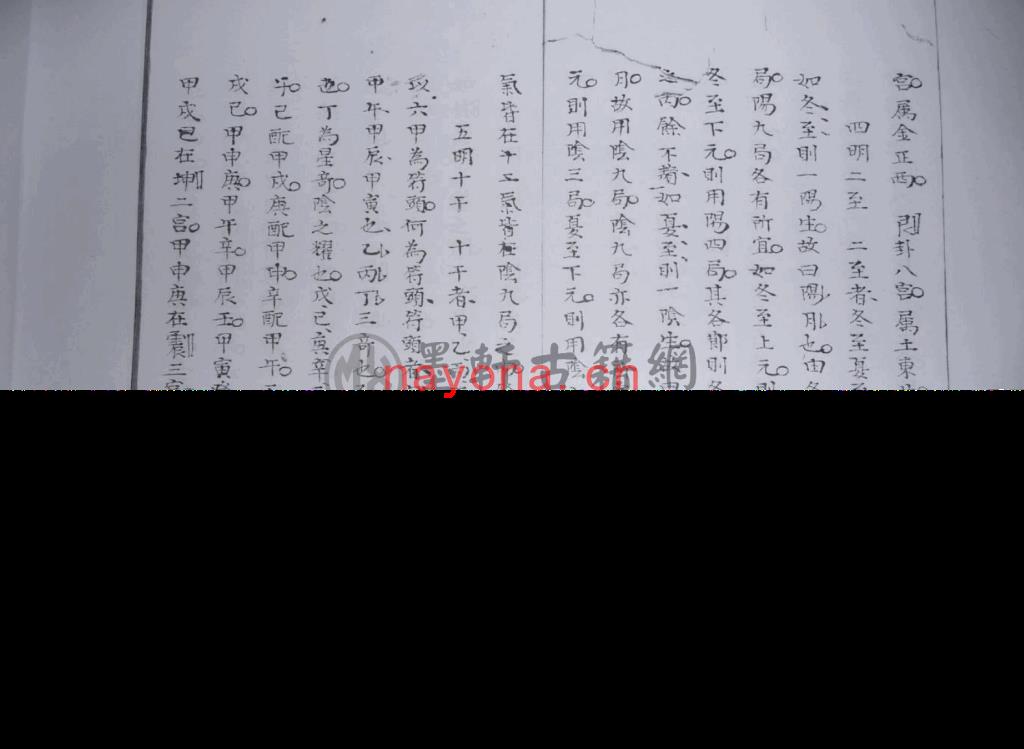 宮属金正西 卦八宮属土東
四明二至 二至者冬至夏至
如冬至則一陽生故曰陽月也由冬
局陽九局各有所宜如冬至上元則
冬至下元則用陽四局其各節則各
之丙餘不贅如夏至則一陰生
月故用陰九局陰九局亦各有
元則用陰三局夏至下元則用陰
氣皆在十二氣皆在陰九局之
五明十干 十干者甲乙丙
六甲為符頭何為符頭符頭者
甲午甲辰甲寅也乙丙丁三奇也
也丁為星奇陰之耀也戊己庚辛
己配甲戌庚配甲申辛配甲午
戌己甲申庚甲午辛甲辰壬甲寅癸
甲戌己在坤二宮甲申庚在震三宮
墨軒古籍網
nayona.cn